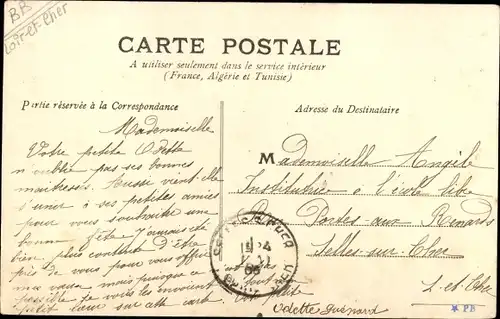 BB
Loir-et-Cher
CARTE POSTALE
A utiliser seulement dans le service intérieur
(France, Algérie et Tunisie)
Partie réservée à la Correspondance
Adresse du Destinataire
Mademoiselle
Votre petite Odette
n'oublie pas ses bonnes
maîtresses. Aussi vient-elle
s'unir à ses petites amies
pour vous souhaiter une
bonne fête j'aurais été
bien plus contente d'être
près de vous pour vous offrir
mes vœux mais puisque ce
possible je vous les envoient
petit sur cette carte
n'est pas
tout
Odette Guénard
Mademoiselle Angèle
Institutrice à l'école libre
Rue Portes-aux Renards
Selles-sur-Cher
L-et-Cher
★ PB